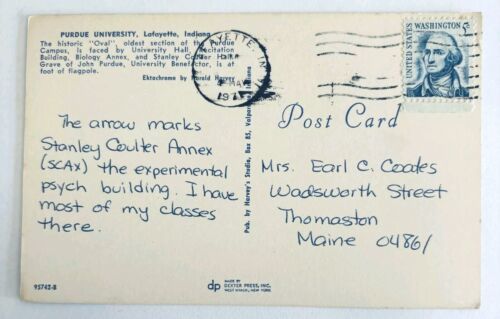 PURDUE UNIVERSITY, Lafayette, Indiana
The historic "Oval", oldest section of the Purdue
Campus, is faced by University Hall, Recitation
Building, Biology Annex, and Stanley Coulter Hall.
Grave of John Purdue, University Benefactor, is at
foot of flagpole.
Ektachrome by Harold Harvey
LAFAYETTE, IN
PM
MAY
1971
UNITED STATES
WASHINGTON
5c
The arrow marks
Stanley Coulter Annex
(SCAX) the experimental
psych building. I have
most of my classes
there.
Pub. by Harvey's Studio, Box 85, Valparaiso, Indiana
Post Card
Mrs. Earl C. Coates
Wadsworth Street
Thomaston
Maine 04861
95742-B
dp
MADE BY
DEXTER PRESS, INC.
WEST NYACK, NEW YORK